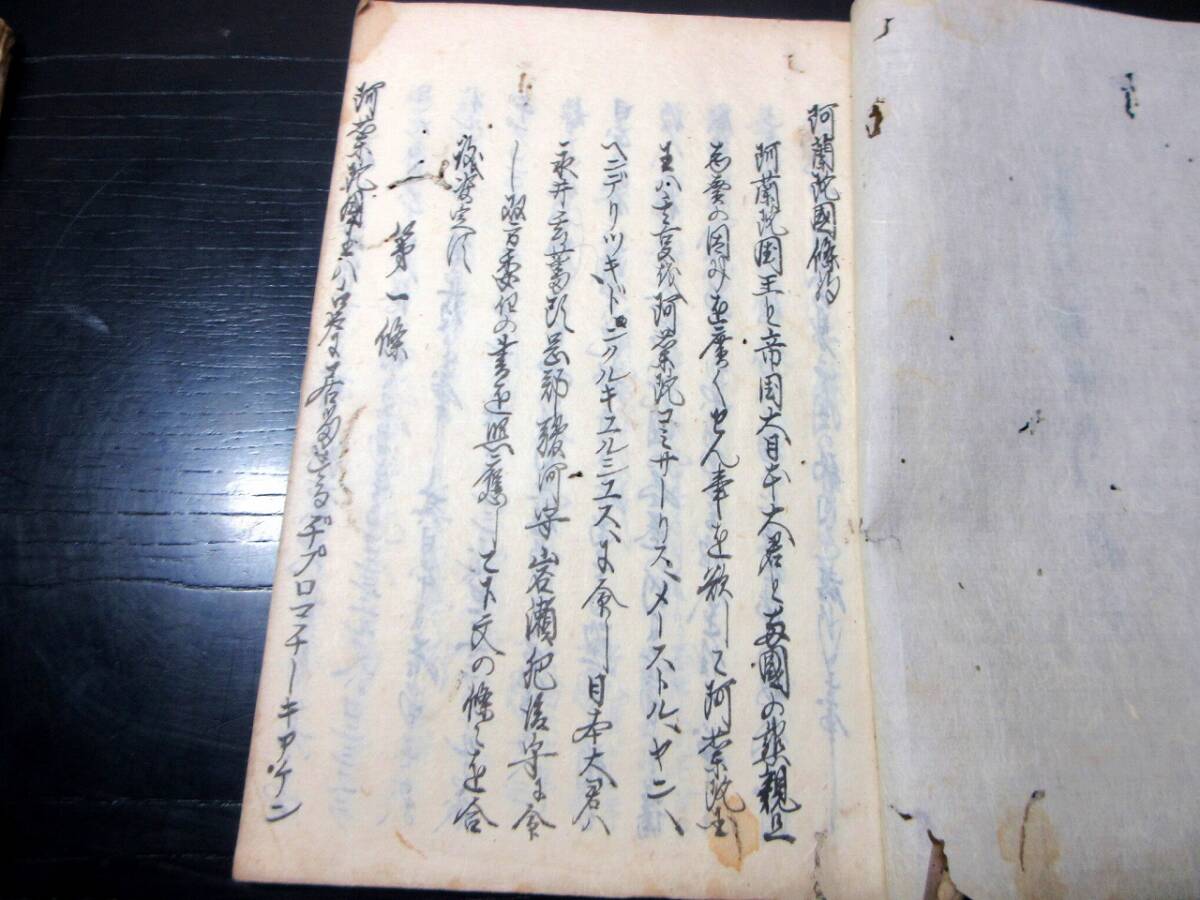 阿蘭陀國條約
阿蘭陀国王と帝国大日本大君と両國の懇親且
交易の因みを廣くせん事を欲して阿蘭陀國
王ハ其事を阿蘭陀コミサーリスヘメーストル、ヤン、
ヘンデリッキ、ドンクルキユルシユスに命し日本大君ハ
永井玄蕃頭岡部駿河守岩瀬肥後守に命
し双方委任の書を照應して下文の條々を合
議定す
第一條
阿蘭陀国王ハ江戸に居留するヂプロマチーキアゲン